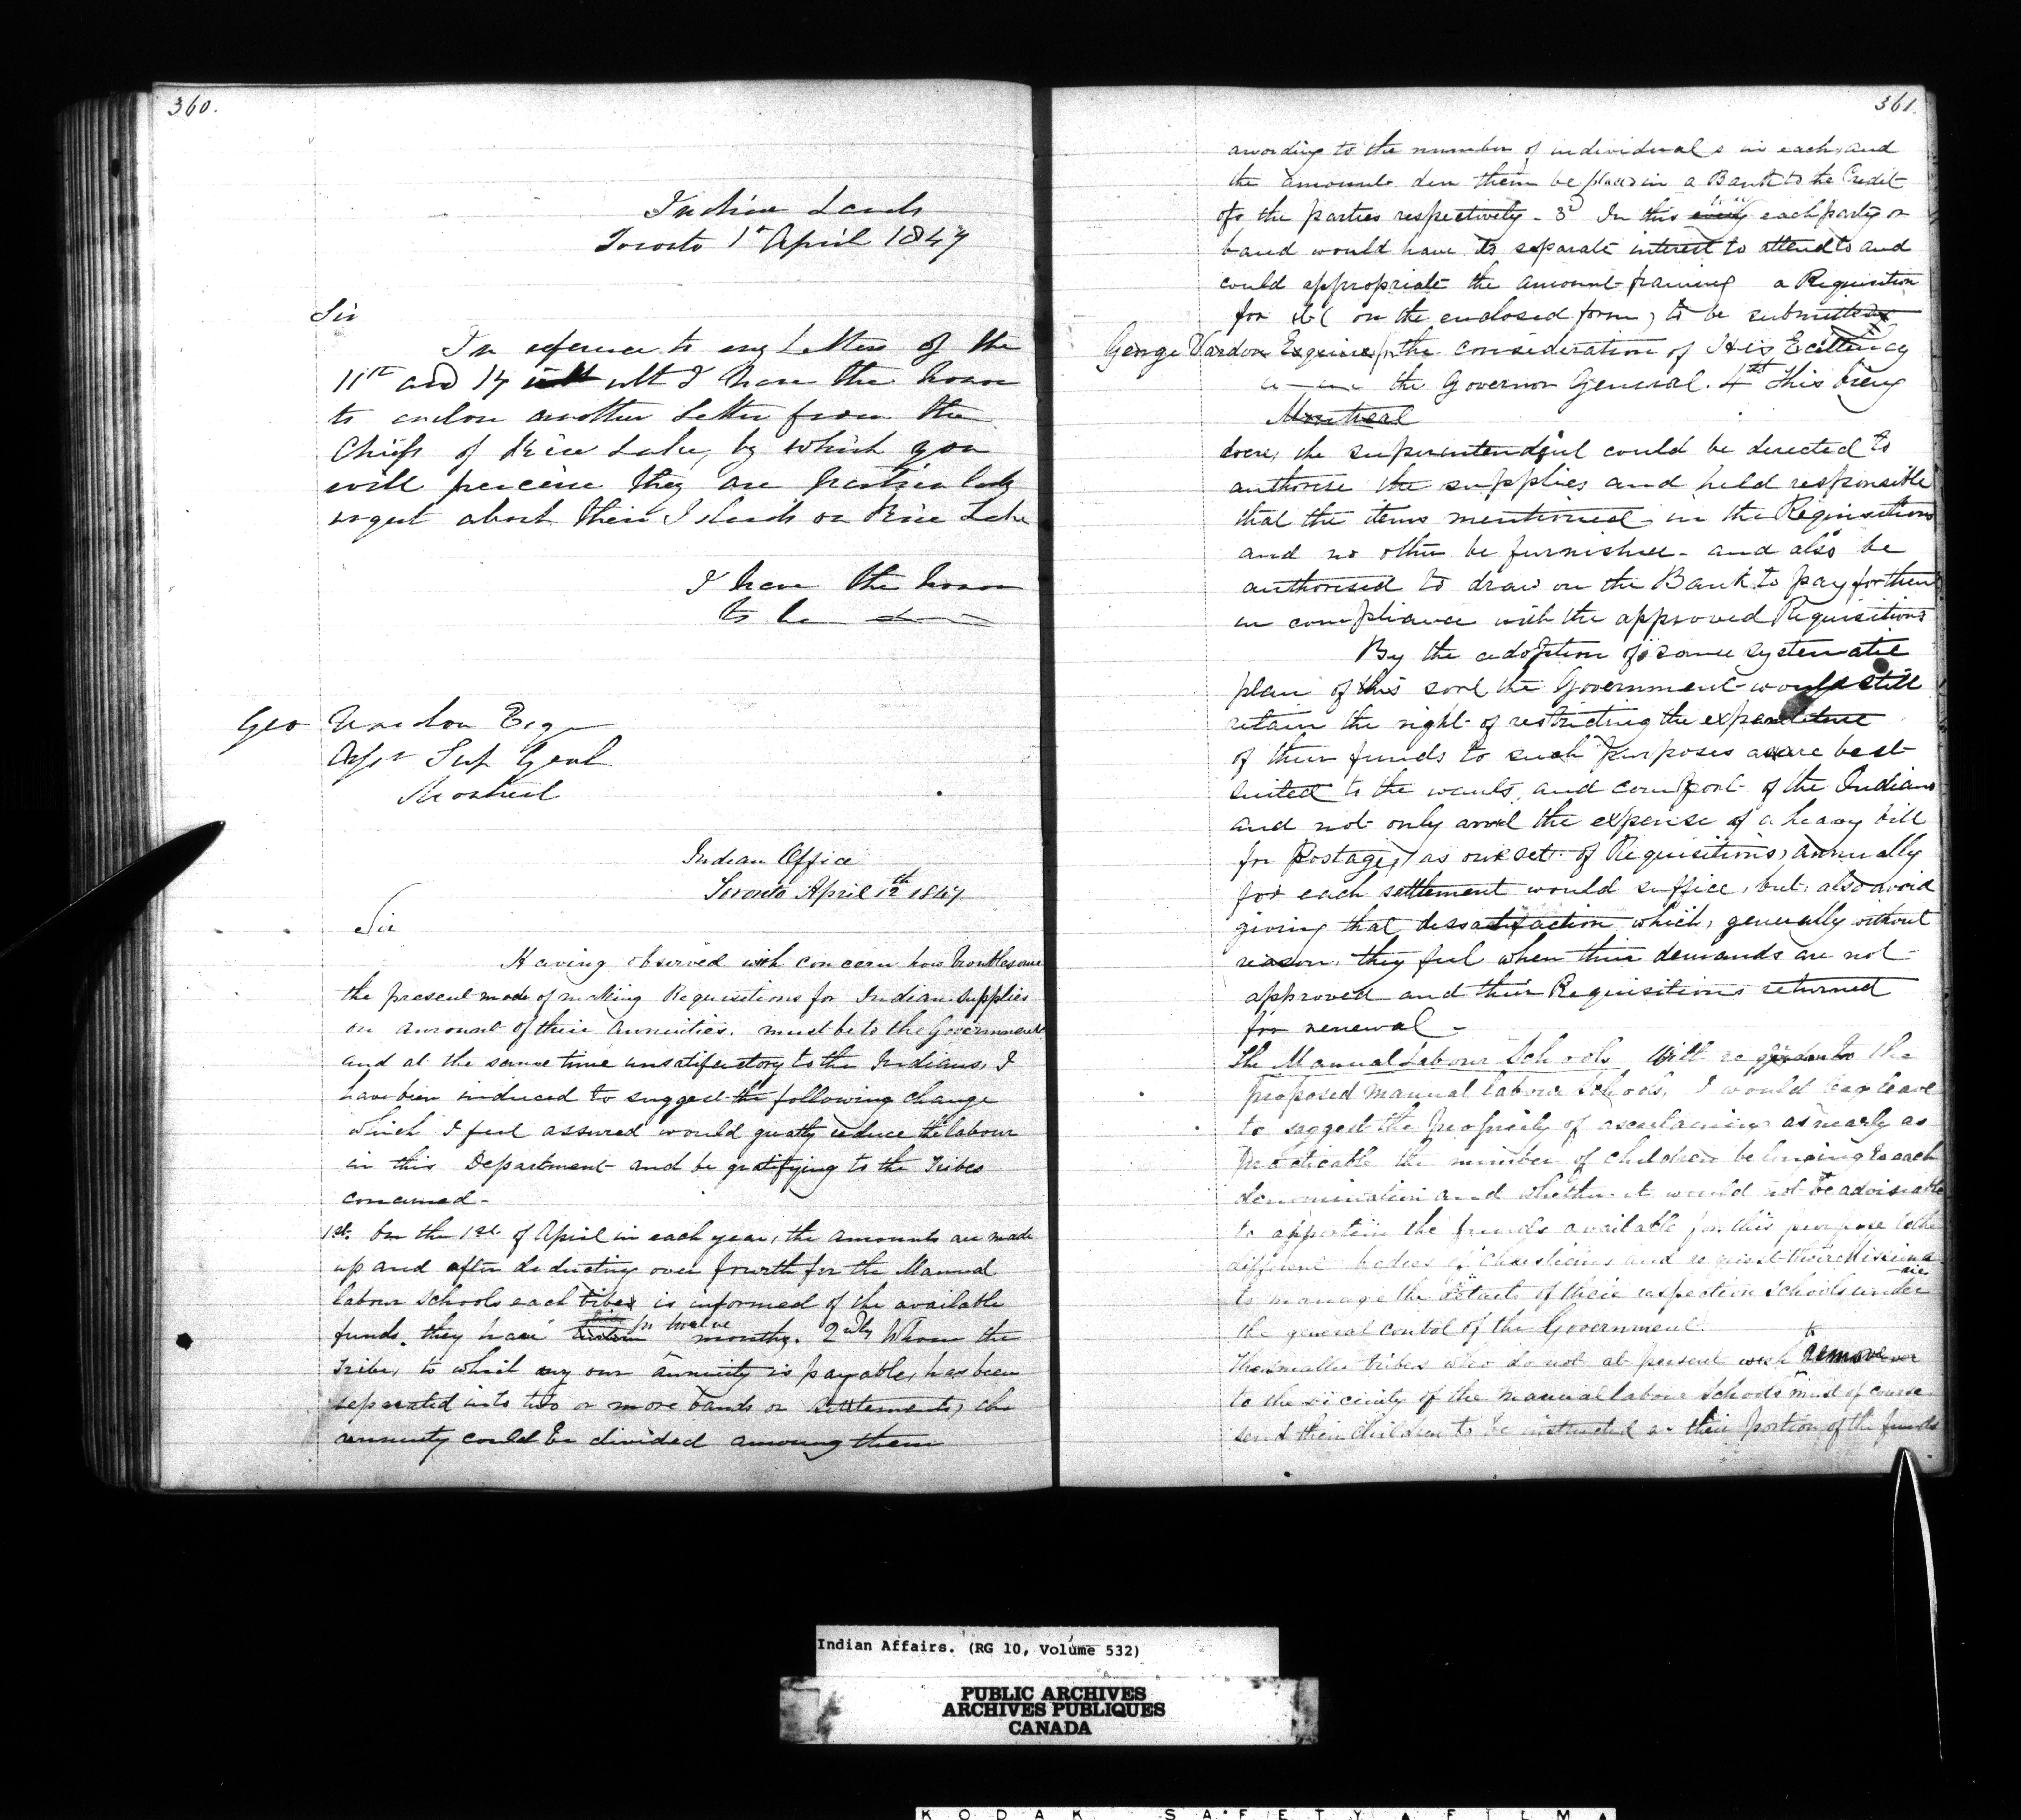 360.
Indian Lands
Toronto 1st April 1847
Sir
In reference to my Letters of the
11th and 17 ult I have the honor
to enclose another Letter from the
Chiefs of Rice Lake, by which you
will perceive they are particularly
urgent about their Islands on Rice Lake
I have the honor
to be
Geo Vardon Esqr
Asst Sup Genl
Montreal
Indian Office
Toronto April 12th 1847
Sir
Having observed with concern how troublesome
the present mode of making Requisitions for Indian Supplies
on amount of their annuities. must be to the Government
and at the same time unsatifactory to the Indians, I
have been induced to suggest the following change
which I feel assured would greatly reduce the labour
in this Department and be gratifying to the Tribes
concerned-
1st. On the 1st of April in each year, the amounts are made
up and after deducting one fourth for the Manual
labour schools each tribe is informed of the available
funds they have for twelve months. 2ndly Where the
Tribe, to which any one annuity is payable, has been
separated into two or more bands or settlements, the
annuity could be divided among them
361.
according to the number of individuals in each, and
the amounts due them be placed in a Bank to the Credit
of the parties respectively - 3d In this way each party or
band would have its separate interest to attend to and
could appropriate the amount framing a Requisition
for it (on the enclosed form) to be submitted
George Vardon Esquire for the consideration of His Excellency
the Governor General. 4th This being
Montreal
done, the superintendent could be directed to
authorise the supplies and held responsible
that the items mentioned in the Requisitions
and no other be furnished - and also be
authorised to draw on the Bank to pay for them
in compliance with the approved Requisitions
By the adoption of some systematic
plan of this sort the Government would still
retain the right of restricting the expenditure
of their funds to such purposes as are best
suited to the wants, and comfort of the Indians
and not only avoid the expense of a heavy bill
for Postage, as one set of Requisitions, annually
for each settlement would suffice, but also avoid
giving that dissatisfaction which, generally without
reason, they feel when their demands are not
approved and their Requisitions returned
for renewal -
The Manual Labour Schools With regard to the
proposed manual labour Schools, I would beg leave
to suggest the propriety of ascertaining as nearly as
practicable the number of children belonging to each
denomination and whether it would not be advisable
to apportion the funds available for this purpose to the
different bodies of Christians and request their Missiona
-ries
to manage the details of their respective schools under
the general control of the Government.
The smaller tribes who do not at present wish to remove
to the vicinity of the manual labour Schools must of course
send their children to be instructed or their portion of the funds
Indian Affairs. (RG 10, Volume 532)
PUBLIC ARCHIVES
ARCHIVES PUBLIQUES
CANADA
KODAK SAFETY FILM